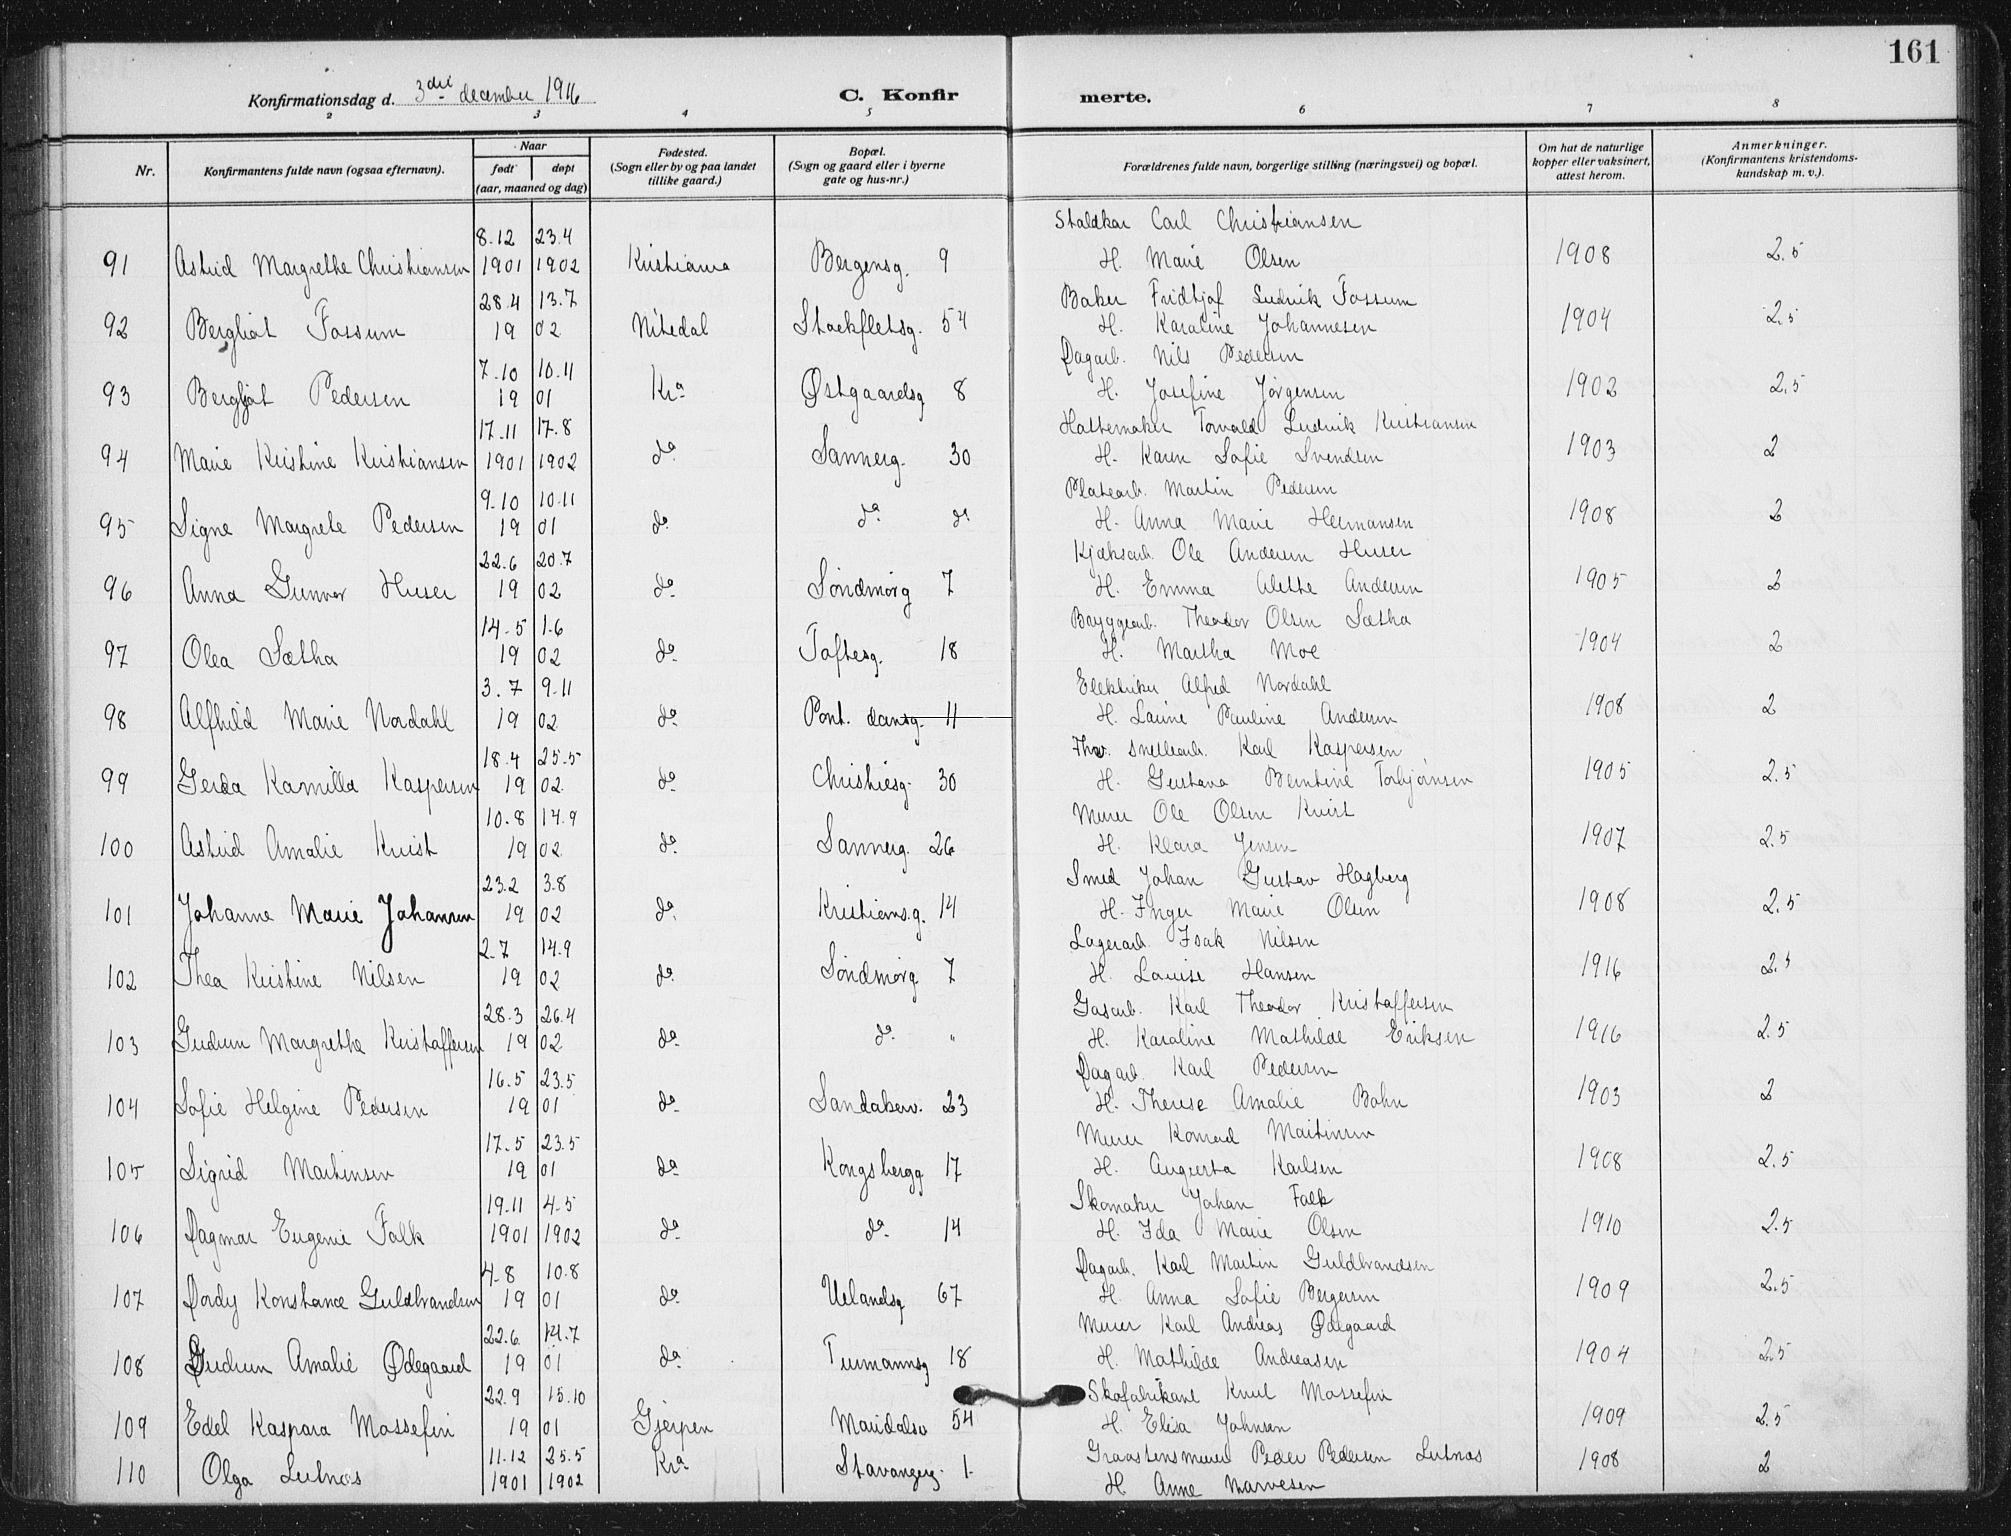 161
Konfirmationsdag d. 3die december 1916 C. Konfir merte.
2 3 4 5 6 7 8
Nr. Konfirmantens fulde navn (ogsaa efternavn). Naar født døpt (aar, maaned og dag) Fødested. (Sogn eller by og paa landet tillike gaard.) Bopæl. (Sogn og gaard eller i byerne gate og hus-nr.) Forældrenes fulde navn, borgerlige stilling (næringsvei) og bopæl. Om hat de naturlige kopper eller vaksinert, attest herom. Anmerkninger. (Konfirmantens kristendoms-kundskap m. v.).
8.12 23.4 Staldkar Carl Christiansen
91 Astrid Margrethe Christiansen 1901 1902 Kristiania Bergensg. 9 H. Marie Olsen 1908 2.5
28.4 13.7 Baker Fridtjof Ludvik Fossum
92 Bergliot Fossum 19 02 Nitedal Stockfletsg. 54 H. Karoline Johannesen 1904 2.5
7.10 10.11 Dagarb. Nils Pedersen
93 Bergljot Pedersen 19 01 Kra Østgaardsg 8 H. Josefine Jørgensen 1902 2.5
17.11 17.8 Hattemaker Torvald Ludvik Kristiansen
94 Marie Kristine Kristiansen 1901 1902 do Sannerg. 30 H. Karen Sofie Svendsen 1903 2
9.10 10.11 Platearb. Martin Pedersen
95 Signe Margrete Pedersen 19 01 do do do H. Anna Marie Hermansen 1908 2
22.6 20.7 Kjøksarb. Ole Andersen Huser
96 Anna Gunvor Huser 19 02 do Søndmørg 7 H. Emma Alethe Andersen 1905 2
14.5 1.6 Bryggearb. Theodor Olsen Sætha
97 Olea Sætha 19 02 do Toftesg. 18 H. Martha Moe 1904 2
3.7 9.11 Elektriker Alfred Nordahl
98 Alfhild Marie Nordahl 19 02 do Pont. dansg. 11 H. Laurine Pauline Andersen 1908 2
18.4 25.5 Karl Kaspersen
99 Gerda Kamilla Kaspersen 19 02 do Christiesg. 30 H. Gustava Berntine Torbjørnsen 1905 2.5
10.8 14.9 Murer Ole Olsen Kvist
100 Astrid Amalie Kvist 19 02 do Sannerg. 26 H. Klara Jensen 1907 2.5
23.2 3.8 Smed Johan Gustav Hagberg
101 Johanne Marie Johansen 19 02 do Kristiansg. 14 H. Inger Marie Olsen 1908 2.5
2.7 14.9 Lagerarb. Isak Nilsen
102 Thea Kristine Nilsen 19 02 do Søndmørg 7 H. Louise Hansen 1916 2.5
28.3 26.4 Gasarb. Karl Theodor Kristoffersen
103 Gudrun Margrethe Kristoffersen 19 02 do do " H. Karoline Mathilde Eriksen 1916 2.5
16.5 23.5 Dagarb. Karl Pedersen
104 Sofie Helgine Pedersen 19 01 do Sandakerv. 23 H. Therese Amalie Bohn 1903 2
17.5 23.5 Murer Konrad Martinsen
105 Sigrid Martinsen 19 01 do Kongsbergg 17 H. Augusta Karlsen 1908 2.5
19.11 4.5 Skomaker Johan Falk
106 Dagmar Eugenie Falk 1901 1902 do do 14 H. Ida Marie Olsen 1910 2.5
4.8 10.8 Dagarb. Karl Martin Guldbrandsen
107 Dordy Konstance Guldbrandsen 19 01 do Uelandsg 67 H. Anna Sofie Bergersen 1909 2.5
22.6 14.7 Murer Karl Andreas Ødegaard
108 Gudrun Amalie Ødegaard 19 01 do Tiumannsg 18 H. Mathilde Andreasen 1904 2.5
22.9 15.10 Skofabrikant Knut Mossefin
109 Edel Kaspara Mossefin 19 01 Gjerpen Maridalsv 54 H. Elisa Johnsen 1909 2.5
11.12 25.5 Graastensmurer Peder Pedersen Lutnæs
110 Olga Lutnæs 1901 1902 Kra Stavangerg. 1. H. Anne Marvesen 1908 2